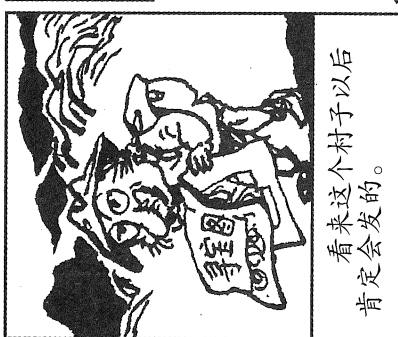 寻宝图
看来这个村子以后
肯定会发的。